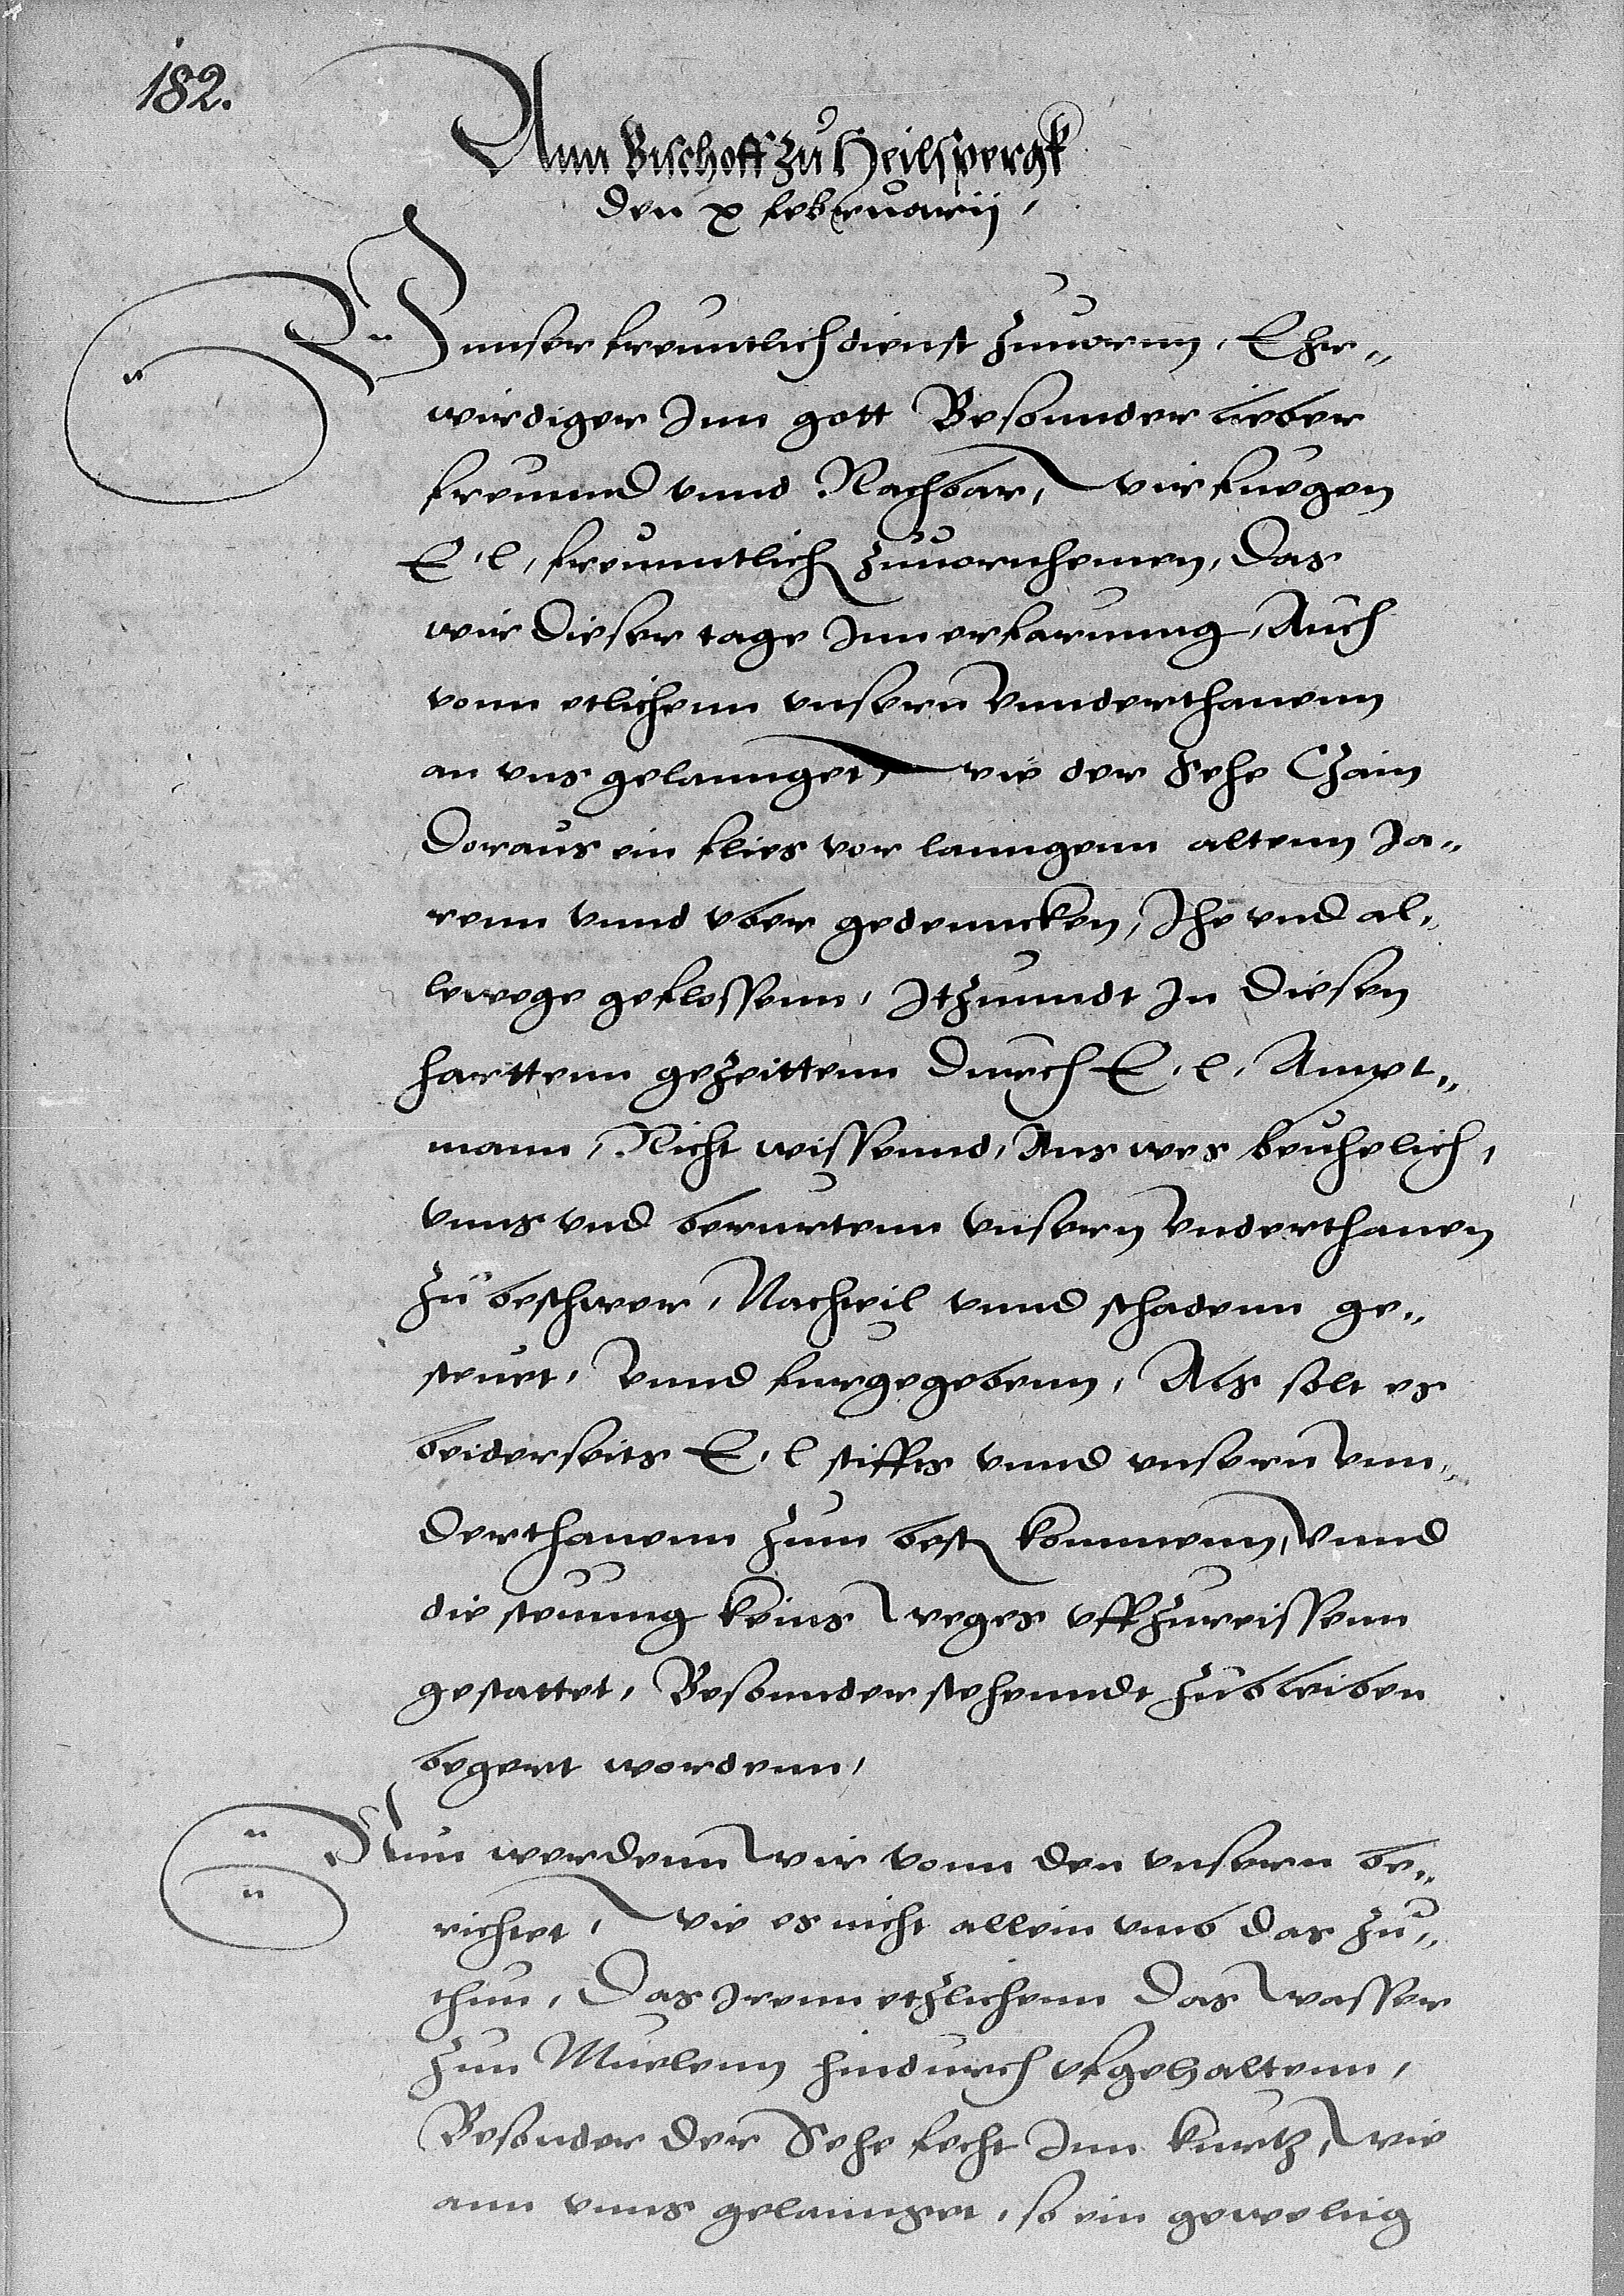 182.
Ann Bischoff zu Heilspergk
den x februarij,
Unnser freuntlich dienst zuuornn, Ehr„
wirdiger Inn gott Besonnder lieber
freunnd vnnd Nachbar, wir fuegen
E, l, freunntlich zuuornhemen, das
wir dieser tage Inn erfarunng, Auch
vonn etlichenn vnsern vnnderthanenn
an vns gelannget, wie der Sehe Chain
doraus ein flies vor lanngenn altenn Ja„
renn vnnd vber gedenncken, Ihe vnd al„
lewege geflossenn, Itzunndt In diesen
harttenn gezeittenn durch E, l, Ampt„
mann, Nicht wissennd, Aus wes beuhelich,
vnns vnd berurtenn vnsern vnderthanen
zu beschwer, Nachteil vnnd schadenn ge„
steuet, vnnd furgegebenn, Als solt es
beiderseits E, l stiffts vnnd vnsern vnn„
derthanenn zum best kommenn, vnnd
die steuung keins weges vffzureissenn
gestattet, Besonnder stehenndt zubleiben
begert wordenn,
Nun werdenn wir vonn den vnsern be„
richtet, wie es nicht allein vmb das zu„
thun, das Irenn etzlichenn das wasser
zun Muelenn hindurch vfgehaltenn,
Besonder der Sehe secht Inn kurtz, wie
ann vnns gelannget, so ein geweldig